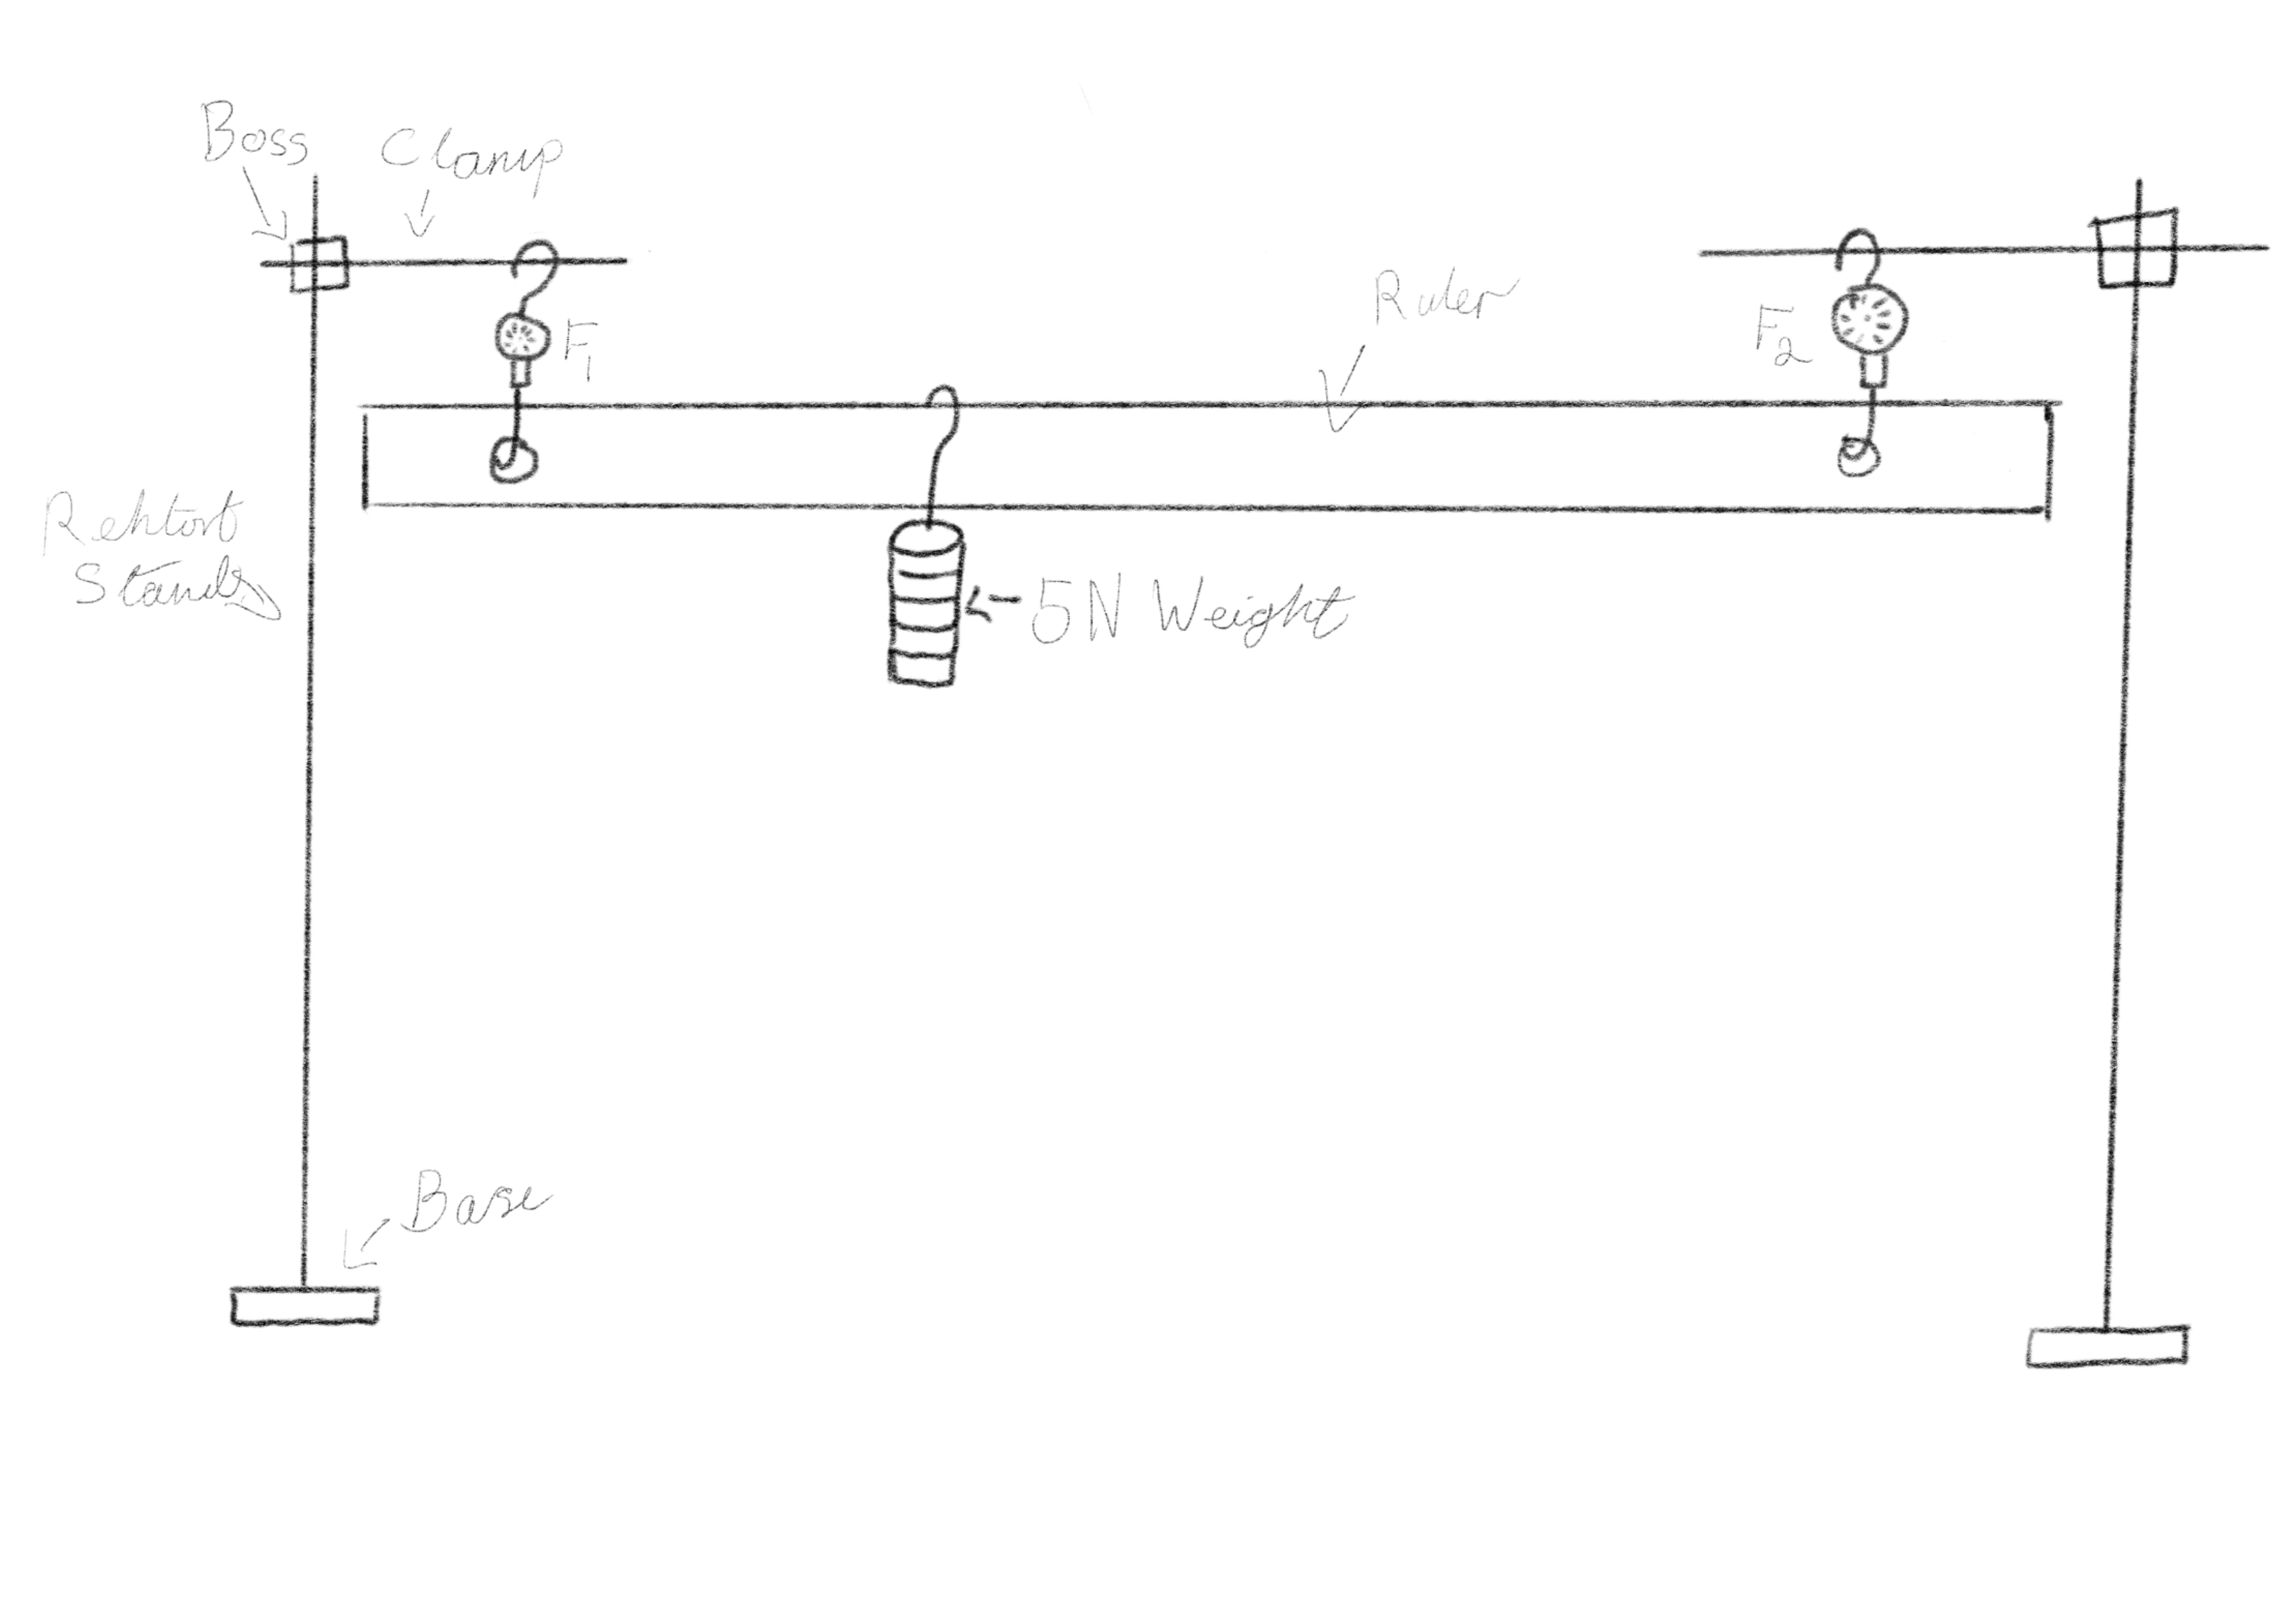 Boss
Clamp
Ruler
F1
F2
Rehtort
Stands
5N Weight
Base